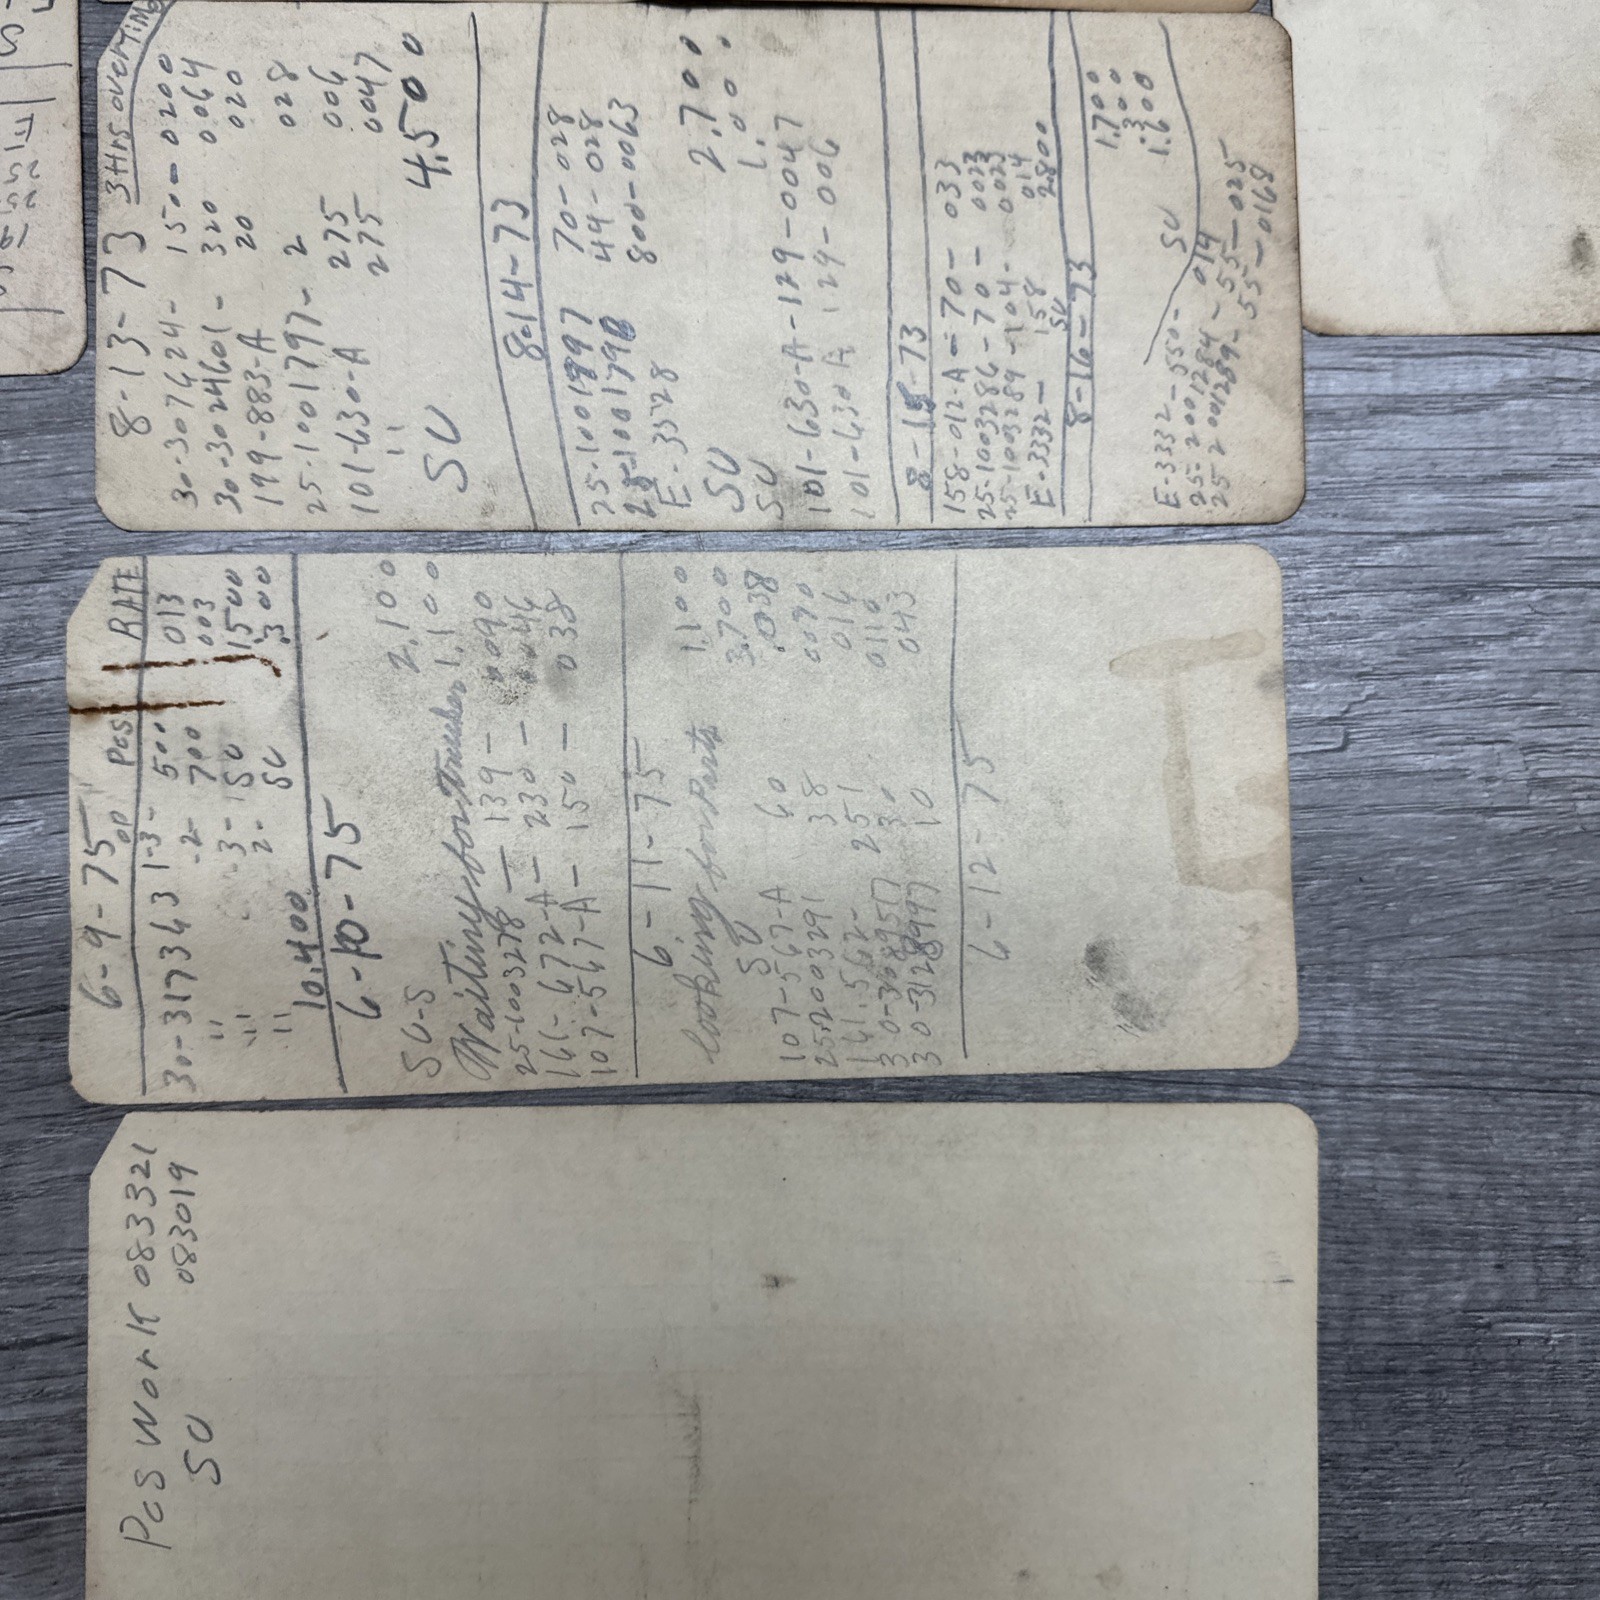 8-13-73 3Hrs overtime
30-307624- 150- 0200
30-302460(- 320 0064
199-883-A 20 020
25-1001797- 2 028
101-630-A 275 006
" 275 0047
SU 4.500
8-14-73
25-1001897 70-028
44-028
E-3528 800-0063
SU 2.700
SU 1.00
101-630-A-129-0047
101-630A 129-006
8-15-73
158-012-A-70-033
25-1003286-70-0023
25-1003289-104-0023
E-3332- 158 014
SU 2800
8-16-73
1.700
.300
SU 1.600
E-3332-550- 014
25-2001284-55-025
25 2001289-55-0168
6-9-75 OP Pcs RATE
30-317343 1-3- 500 013
" -2- 700 003
" 3- SU 1500
" 2- SU .300
10.400
6-10-75
SU-S 2.100
Waiting for Trucker 1.100
25-1003278 - 139- 0090
161-672-A- 230- 0046
107-567-A- 150- 038
6-11-75
looking for parts 1.100
SU 3.700
107-567-A 60 .0038
25-2003291 38 0090
141.562- 251 016
30-308957 30 0110
30-3128997 10 043
6-12-75
Pcs Work 083321
SU 083019